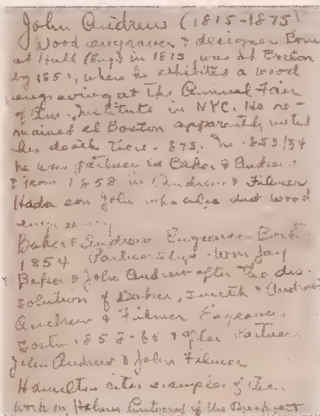 John Andrew (1815-1875)
Wood engraver & designer Born
at Hull Eng. in 1815 was at Boston
by 1851, where he exhibited a wood
engraving at the Annual Fair
of Am. Institute in NYC. He re-
mained at Boston apparently until
his death there 1875. In 1853/54
he was partner in Baker & Andrew
& from 1858 in Andrew & Filmer
Had a son John who also did wood
Baker & Andrew Engravers Bost.
1854 Partnership Wm Jay
Baker & John Andrew after the dis-
solution of Baker, Smith & Andrew
Andrew & Filmer Engravers
Boston 1858-60 & after Partners
John Andrew & John Filmer
Hamilton cites examples of their
work in Holmes Autocrat of the Breakfast